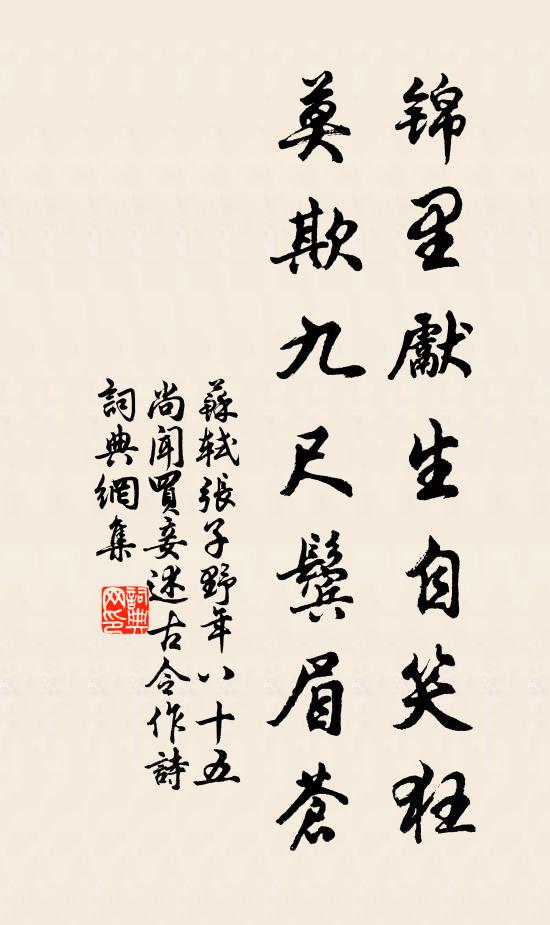 锦里獻生自笑狂
莫欺九尺鬓眉苍
蘇軾張子野年八十五
尚聞買妾述古令作詩
詞典網集
詞典
网印